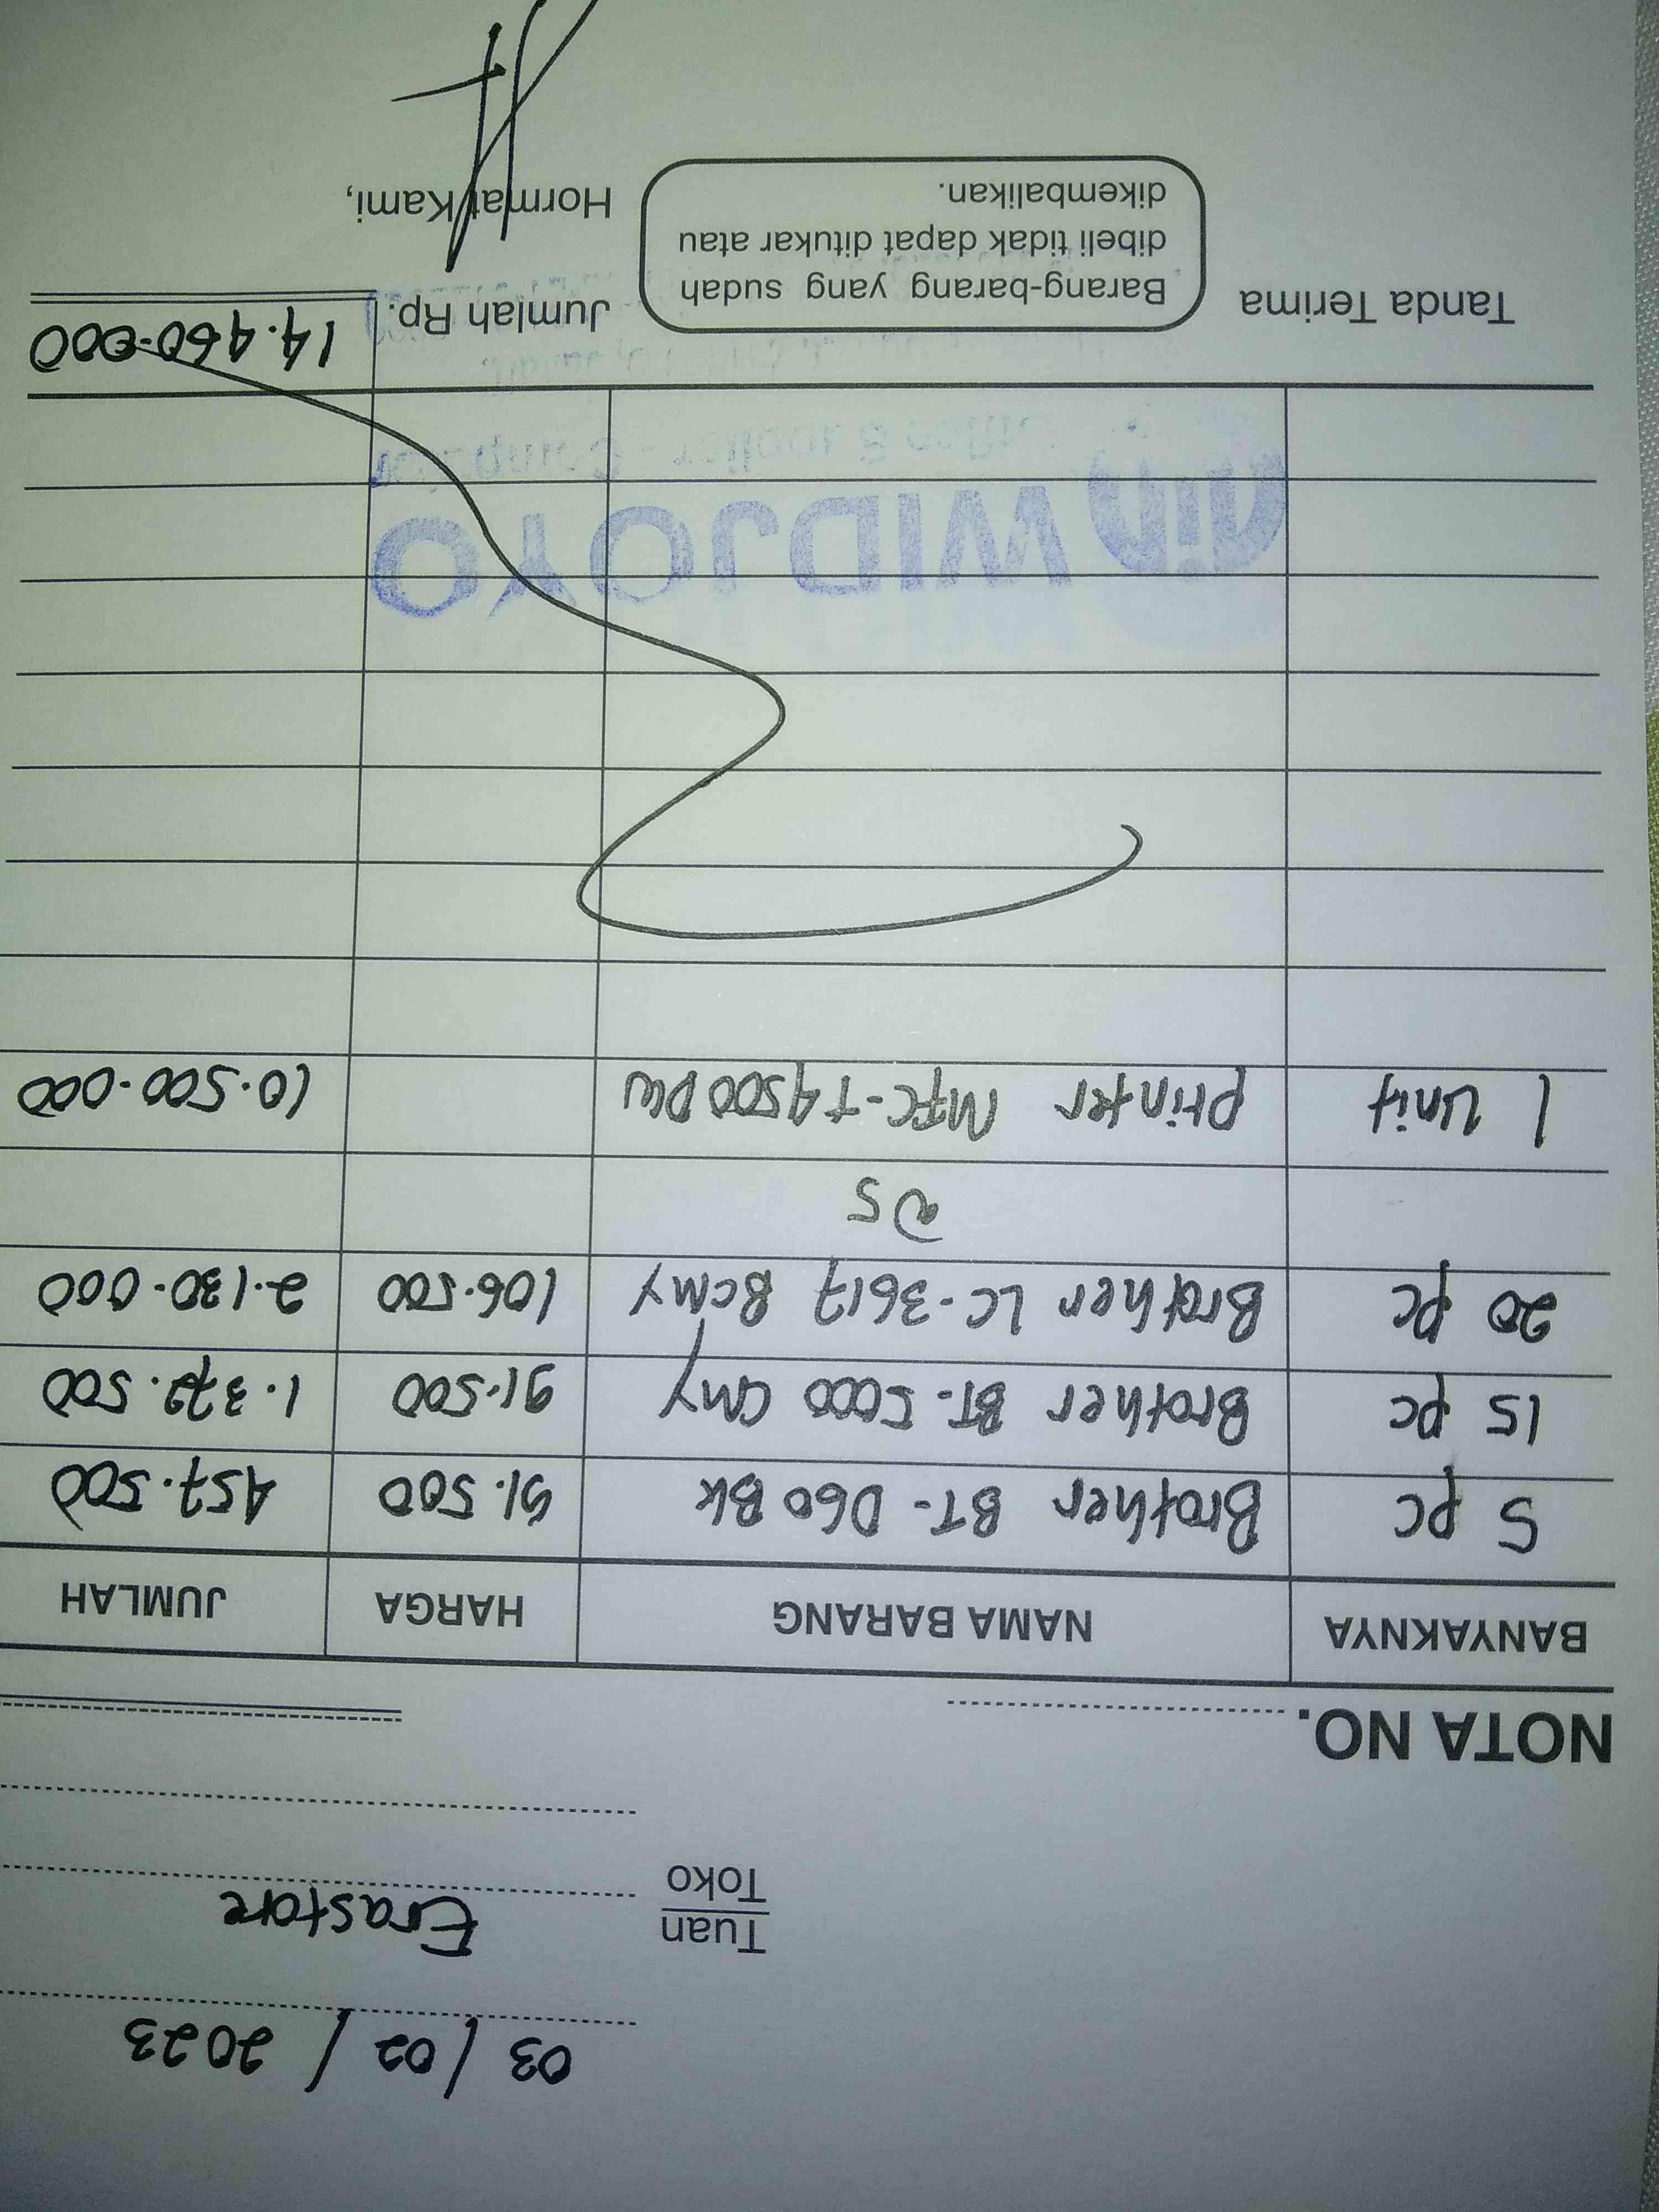 03 / 02 / 2023
Tuan
Toko Erastore
NOTA NO.
BANYAKNYA NAMA BARANG HARGA JUMLAH
5 pc Brother BT-D60 BK 91.500 457.500
15 pc Brother BT-5000 CMY 91.500 1.372.500
20 pc Brother LC-3617 BCMY 106.500 2.130.000
@5
1 Unit Printer MFC-T4500DW 10.500.000
WIDJOYO
Tanda Terima
Barang-barang yang sudah
dibeli tidak dapat ditukar atau
dikembalikan.
Jumlah Rp. 14.460.000
Hormat Kami,